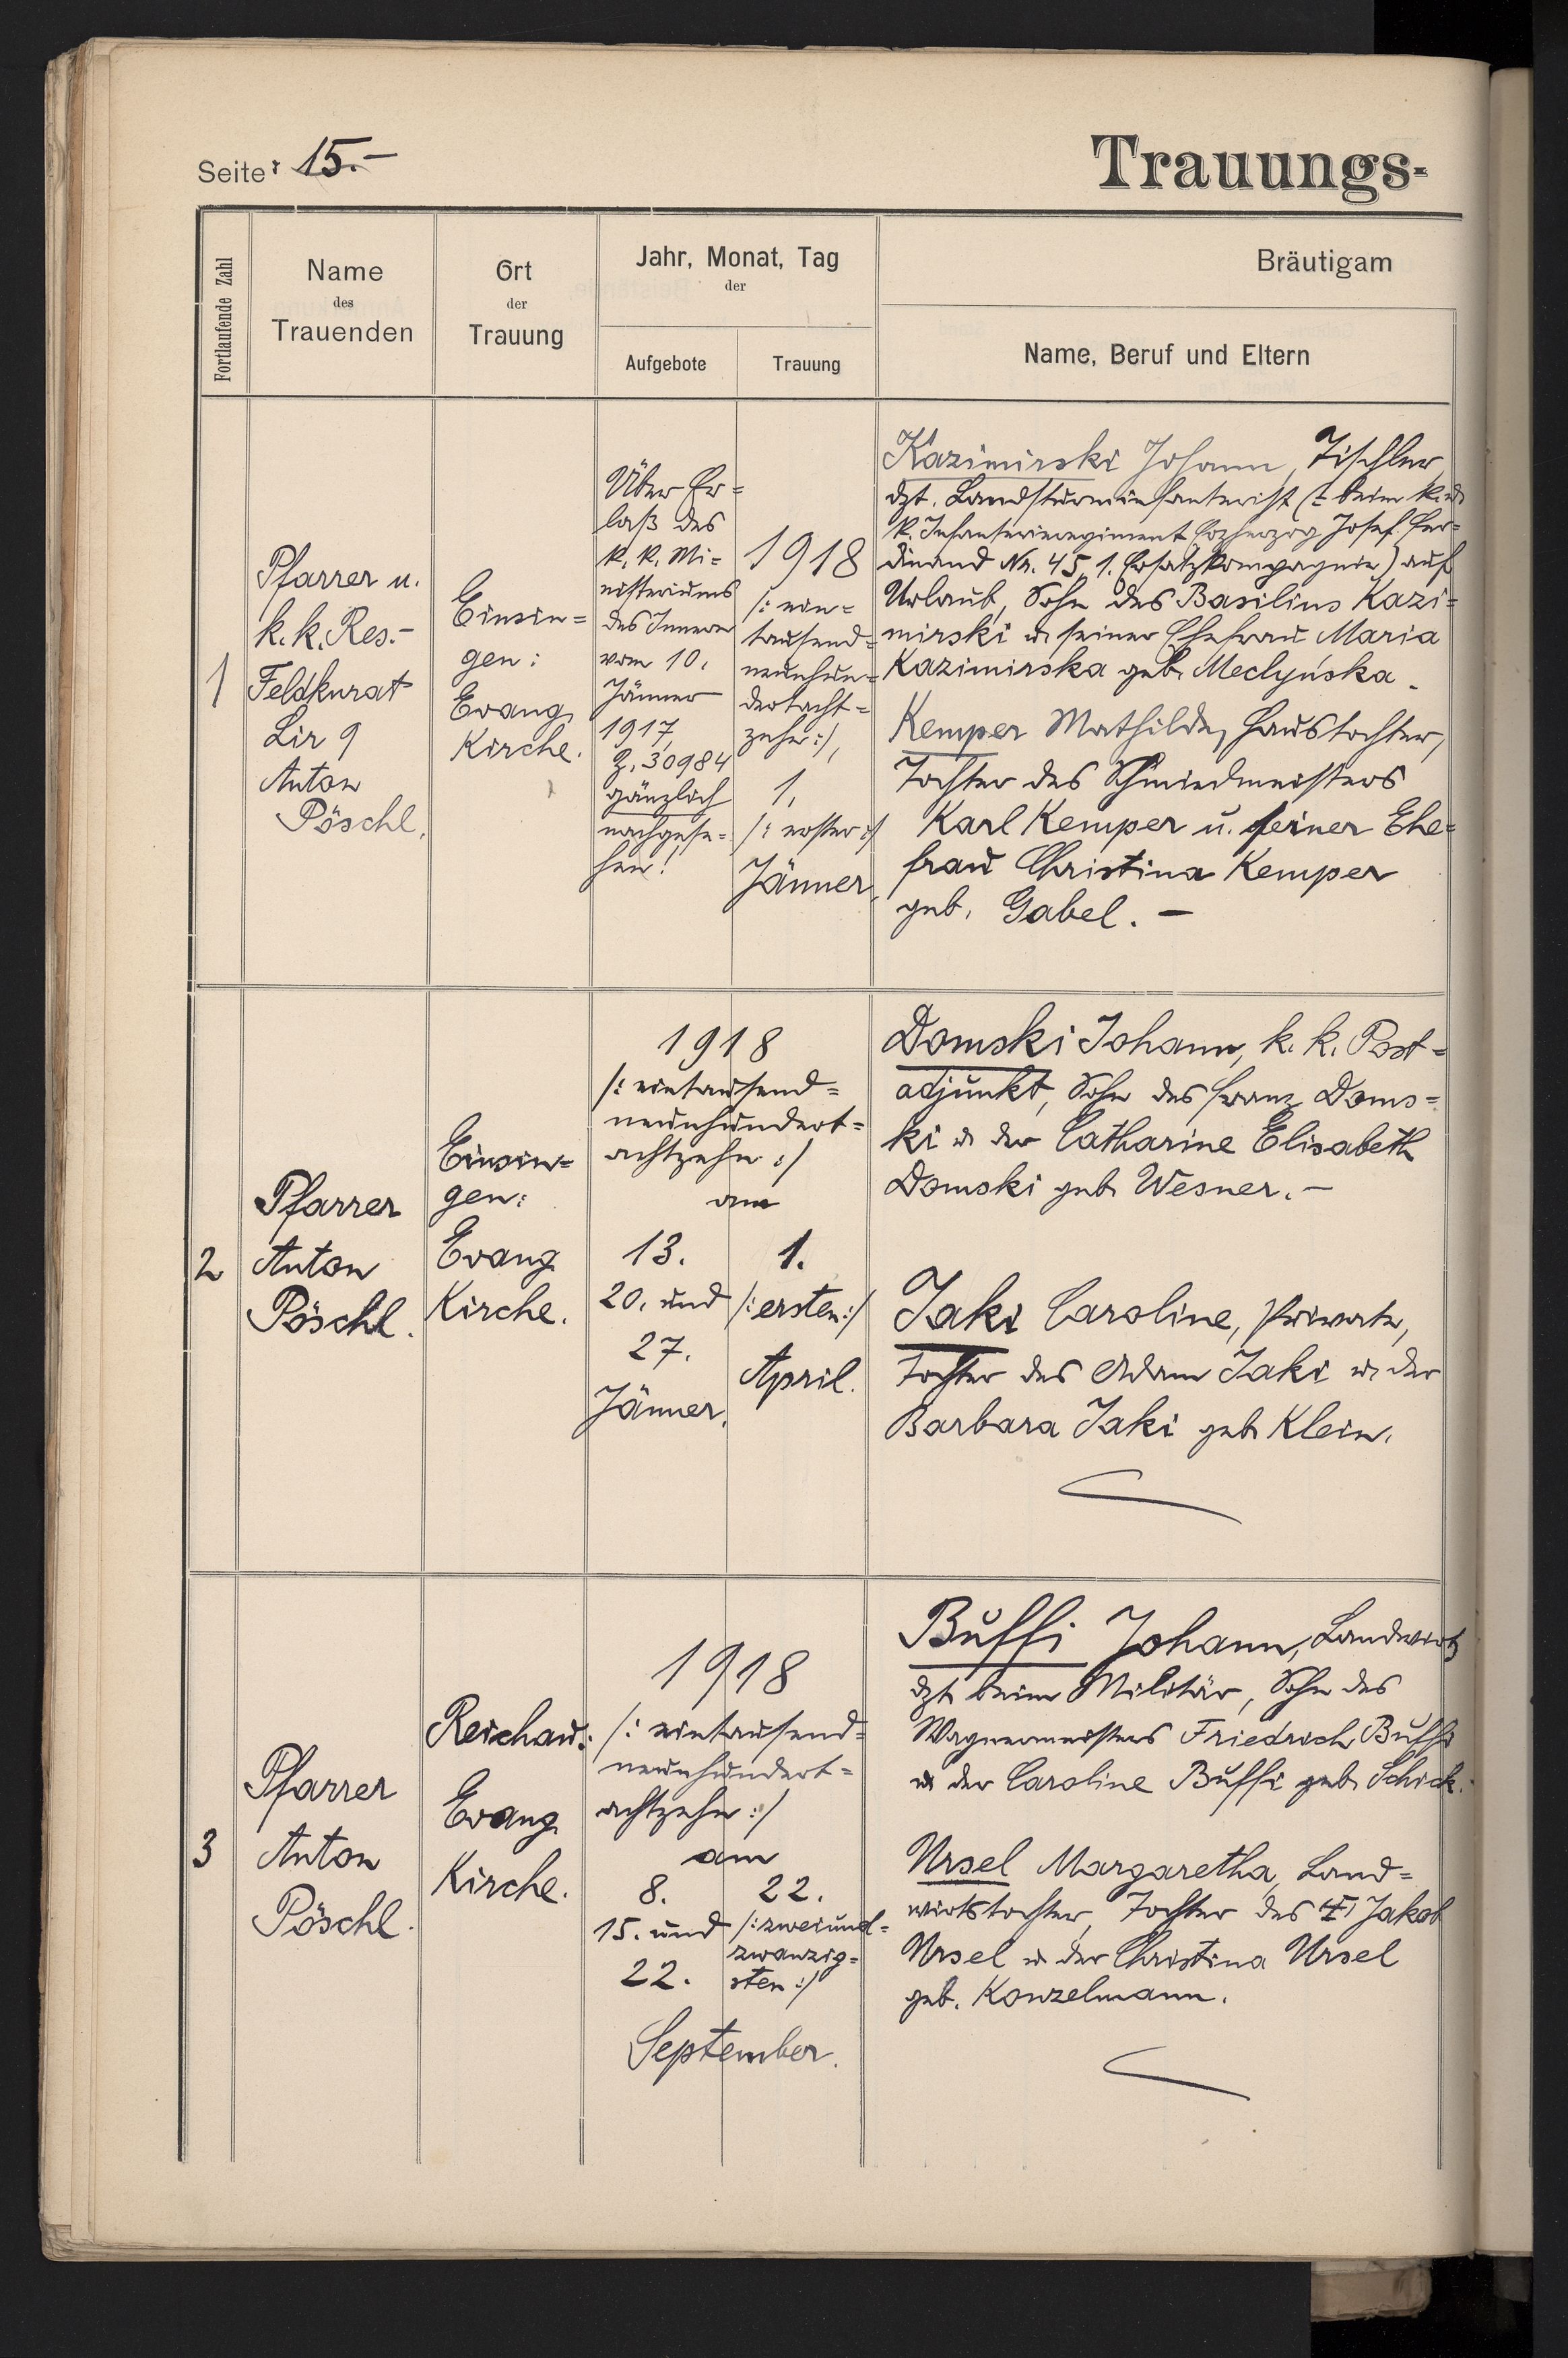 Seite: 15.-
Trauungs-
Fortlaufende Zahl
Name
des
Trauenden
Ort
der
Trauung
Jahr, Monat, Tag
der
Aufgebote
Trauung
Bräutigam
Name, Beruf und Eltern
1
Pfarrer u.
k. k. Res.-
Feldkurat
Lir 9
Anton
Pöschl.
Einsin=
gen:
Evang.
Kirche.
Über Er=
laß des
k. k. Mi=
nisteriums
des Innern
vom 10.
Jänner
1917,
Z. 30984
gänzlich
nachgese=
hen!
1918
/: ein=
tausend=
neunhun=
dertacht=
zehn :/,
1.
/: erster :/
Jänner.
Kazimirski Johann, Tischler,
dzt. Landsturminfanterist (= beim k. u.
k. Infanterieregiment Erzherzog Josef Fer=
dinand Nr. 45, 1. Ersatzkompagnie) auf
Urlaub, Sohn des Basilius Kazi=
mirski u. seiner Ehefrau Maria
Kazimirska geb. Meclyńska.
Kemper Mathilde, Haustochter,
Tochter des Schmiedmeisters
Karl Kemper u. seiner Ehe=
frau Christina Kemper
geb. Gabel. -
2
Pfarrer
Anton
Pöschl.
Einsin=
gen:
Evang.
Kirche.
1918
/: eintausend=
neunhundert=
achtzehn :/
am
13.
20. und
27.
Jänner.
1.
/: ersten :/
April.
Domski Johann, k. k. Post=
adjunkt, Sohn des Franz Doms=
ki u. der Catharine Elisabeth
Domski geb. Wesner. -
Jaki Caroline, Private,
Tochter des Adam Jaki u. der
Barbara Jaki geb. Klein.
3
Pfarrer
Anton
Pöschl.
Reichau:
Evang.
Kirche.
1918
/: eintausend=
neunhundert=
achtzehn :/
am
8.
15. und
22.
22.
/: zweiund=
zwanzig=
sten :/
September.
Buffi Johann, Landwirt,
dzt. beim Militär, Sohn des
Wagnermeisters Friedrich Buffi
u. der Caroline Buffi geb. Schick.
Ursel Margaretha, Land=
wirtstochter, Tochter des Jakob
Ursel u. der Christina Ursel
geb. Konzelmann.